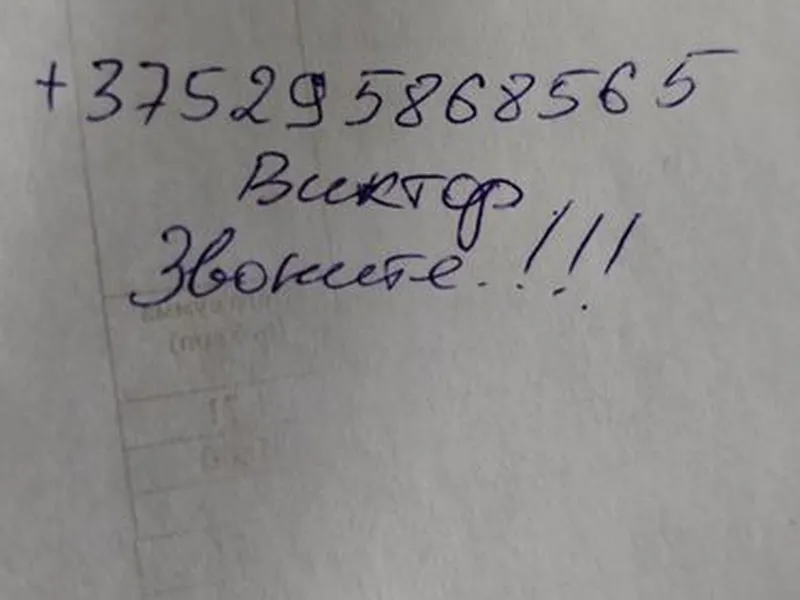 +375295868565
Виктор
Звоните.!!!